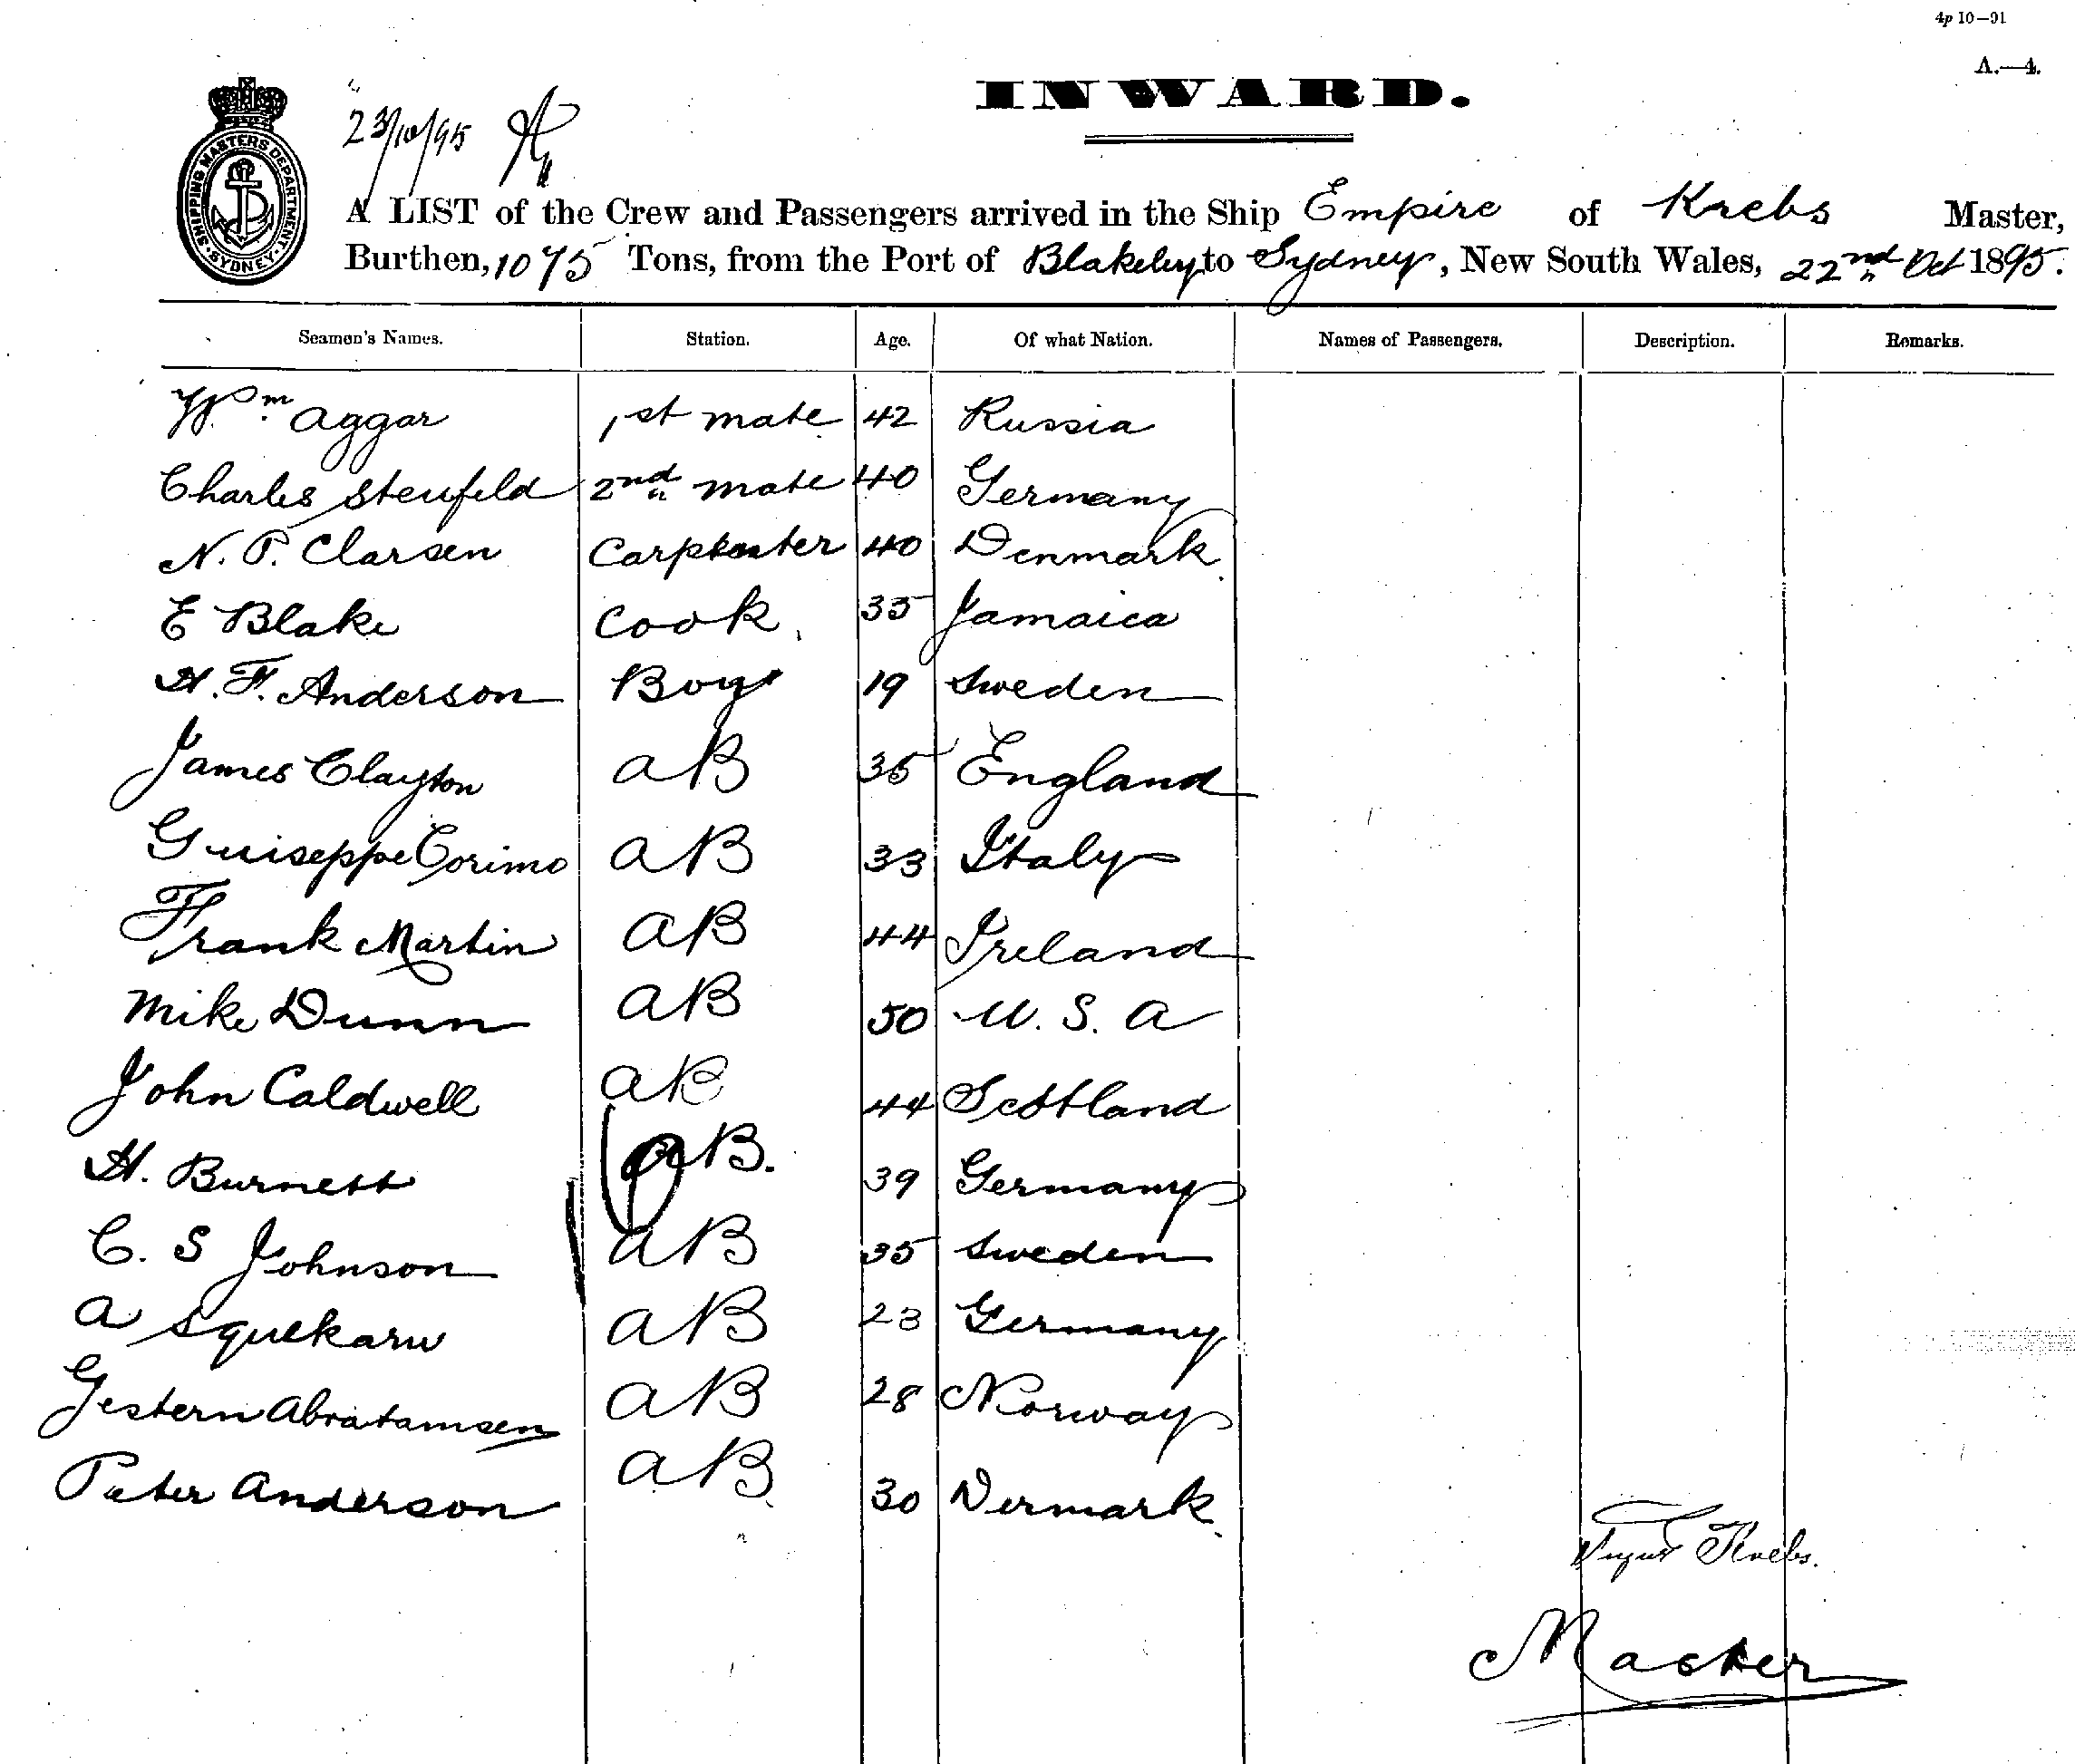 4p 10—91
A.—4.
INWARD.
SHIPPING MASTERS DEPARTMENT
SYDNEY
23/10/95
A LIST of the Crew and Passengers arrived in the Ship Empire of Krebs Master,
Burthen, 1075 Tons, from the Port of Blakeley to Sydney, New South Wales, 22nd Oct 1895.
Seamen's Names. Station. Age. Of what Nation. Names of Passengers. Description. Remarks.
Wm. Aggar 1st mate 42 Russia
Charles Steufeld 2nd mate 40 Germany
N. P. Clarsen 40 Denmark
E Blake Cook 35 Jamaica
H. F. Anderson Boy 19 Sweden
James Clayton AB 35 England
Guiseppe Corimo AB 33 Italy
Frank Martin AB 44 Ireland
Mike Dunn AB 50 U. S. A
John Caldwell AB 44 Scotland
H. Burnett AB. 39 Germany
C. S Johnson AB 35 Sweden
A AB 23 Germany
Gestern Abratamsen AB 28 Norway
Peter Anderson AB 30 Denmark
Krebs.
Master